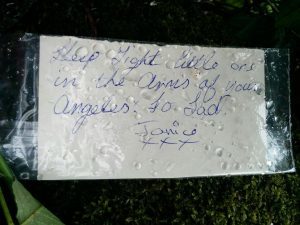 Sleep Tight little ons
in the Arms of your
Angeles. So Sad.
Janice
xxx